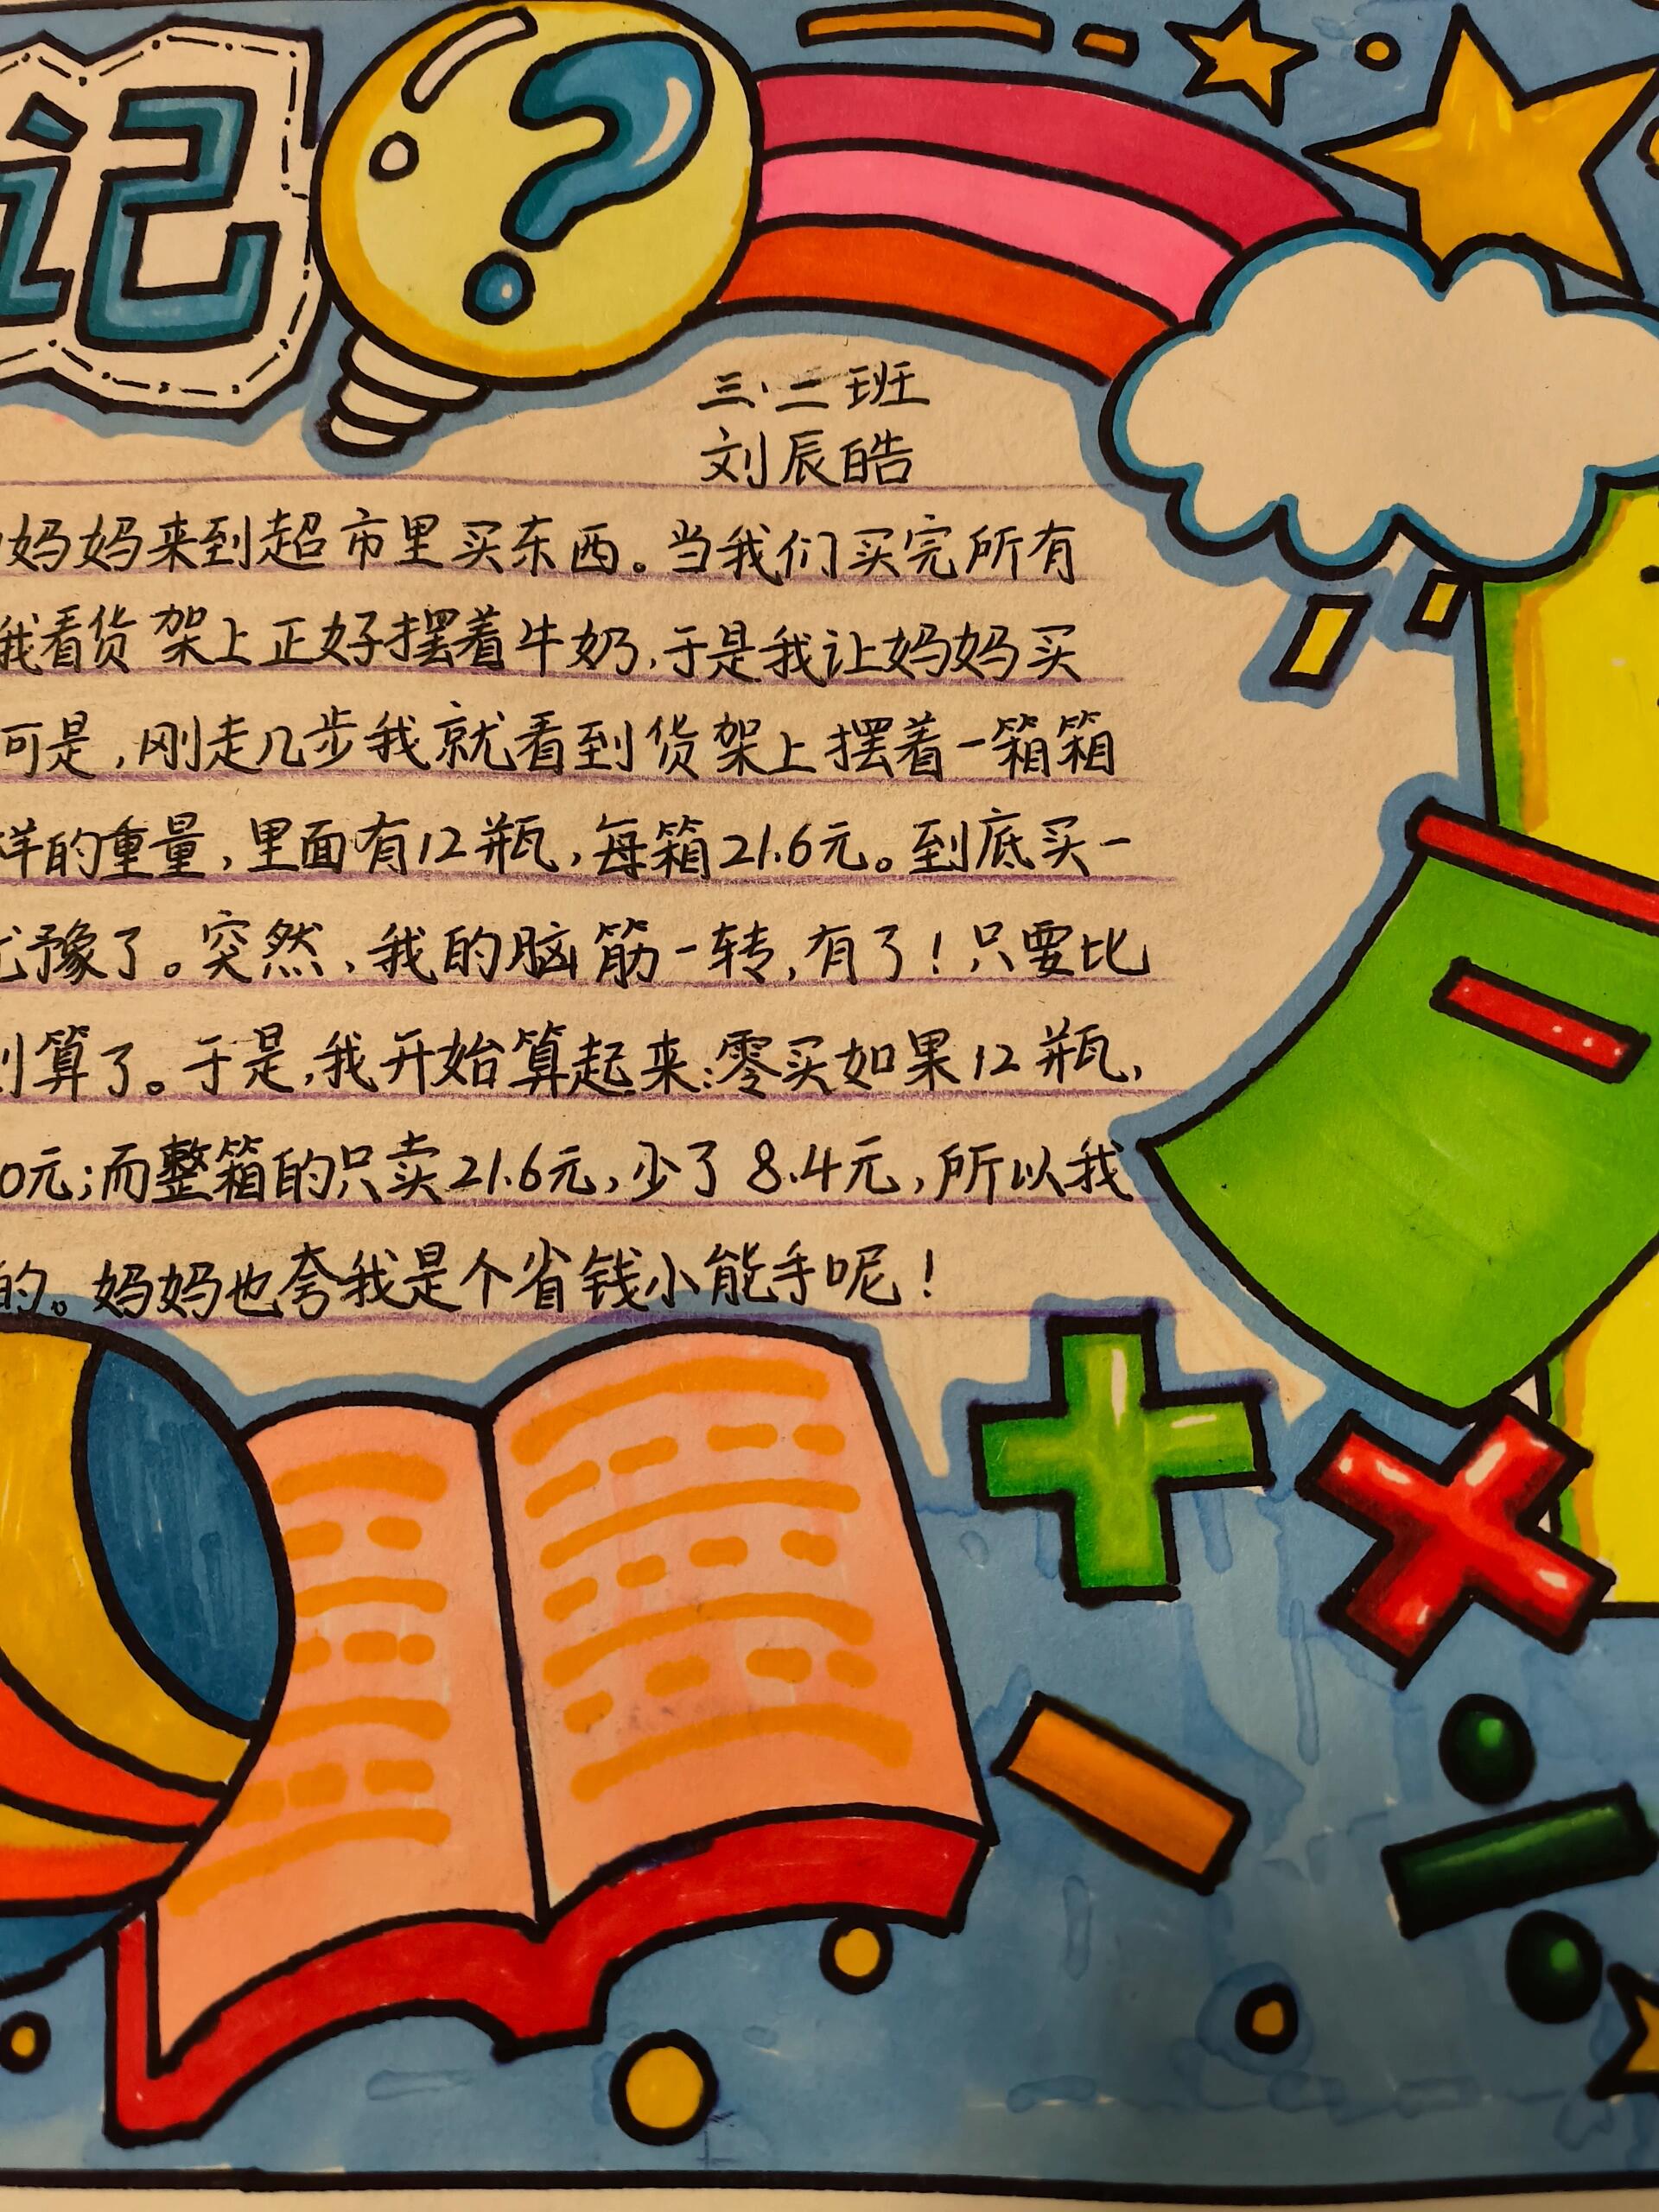 记
三、二班
刘辰皓
妈妈来到超市里买东西。当我们买完所有
我看货架上正好摆着牛奶,于是我让妈妈买
可是,刚走几步我就看到货架上摆着一箱箱
样的重量,里面有12瓶,每箱21.6元。到底买一
豫了。突然,我的脑筋一转,有了!只要比
算了。于是,我开始算起来:零买如果12瓶,
0元;而整箱的只卖21.6元,少了8.4元,所以我
的。妈妈也夸我是个省钱小能手呢!